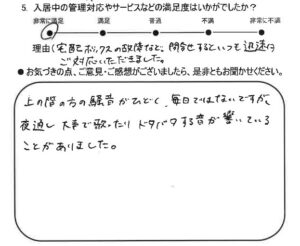 5. 入居中の管理対応やサービスなどの満足度はいかがでしたか?
非常に満足 満足 普通 不満 非常に不満
理由(宅配ボックスの故障など、問合せするといつも迅速に
ご対応いただきました。)
●お気づきの点、ご意見・ご感想がございましたら、是非ともお聞かせください。
上の階の方の騒音がひどく、毎日ではないですが、
夜通し大声で歌ったりドタバタする音が響いている
ことがありました。